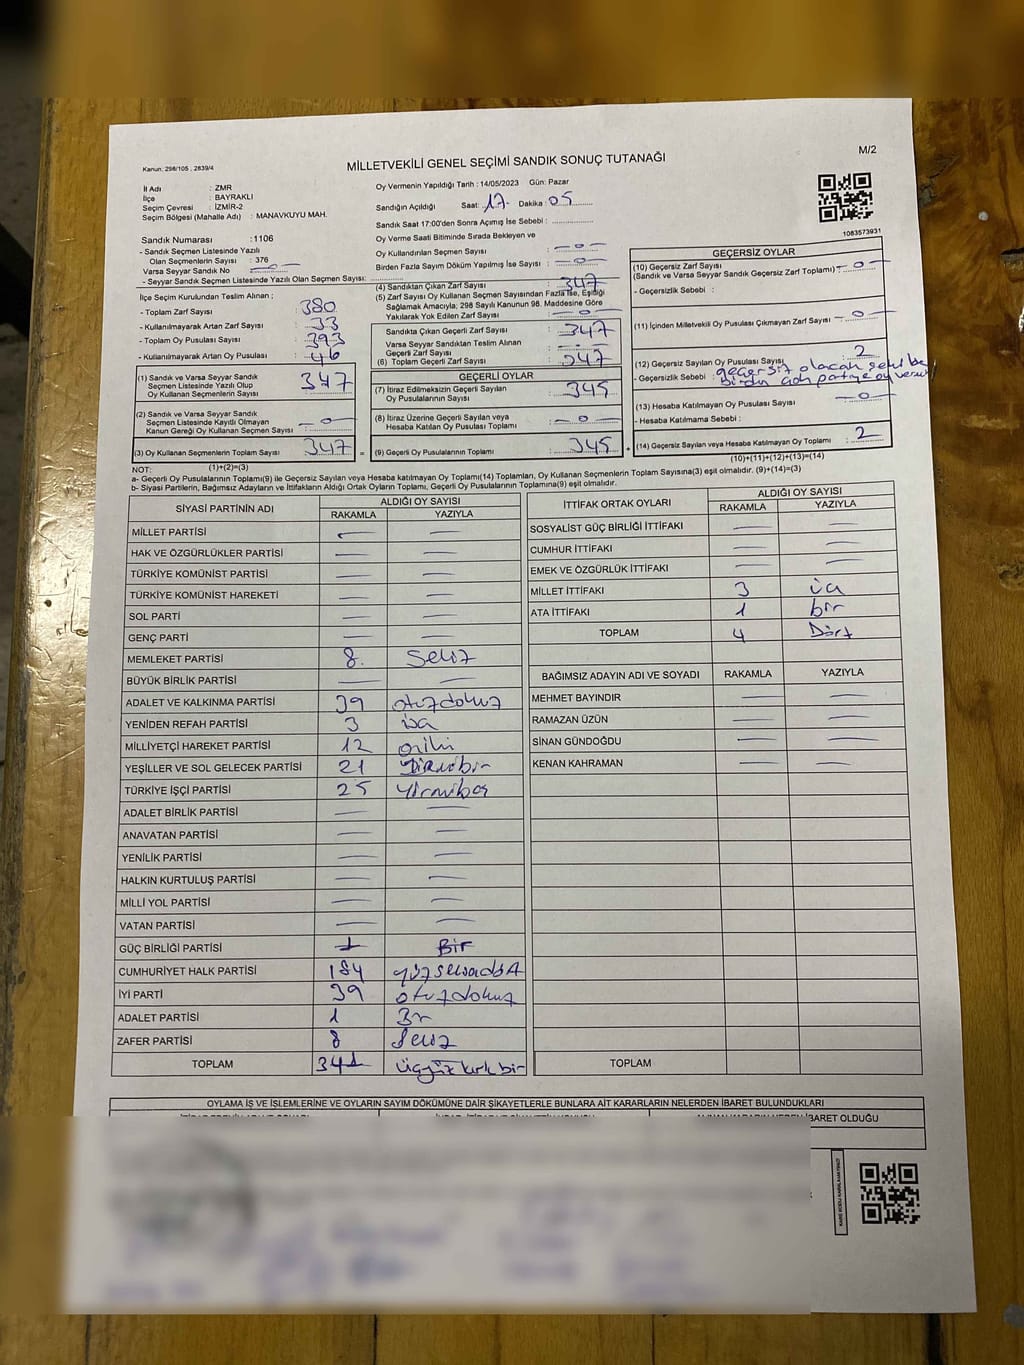 Kanun: 298/105 ; 2839/4
MİLLETVEKİLİ GENEL SEÇİMİ SANDIK SONUÇ TUTANAĞI
M/2
İl Adı : ZMR
İlçe : BAYRAKLI
Seçim Çevresi : İZMİR-2
Seçim Bölgesi (Mahalle Adı) : MANAVKUYU MAH.
Sandık Numarası :1106
- Sandık Seçmen Listesinde Yazılı
Olan Seçmenlerin Sayısı : 376
Varsa Seyyar Sandık No —o—
- Seyyar Sandık Seçmen Listesinde Yazılı Olan Seçmen Sayısı:
Oy Vermenin Yapıldığı Tarih : 14/05/2023 Gün: Pazar
Sandığın Açıldığı Saat: 17 Dakika : 05
Sandık Saat 17:00'den Sonra Açılmış İse Sebebi :
Oy Verme Saati Bitiminde Sırada Bekleyen ve
Oy Kullandırılan Seçmen Sayısı : —o—
Birden Fazla Sayım Döküm Yapılmış İse Sayısı : —o—
1083573931
İlçe Seçim Kurulundan Teslim Alınan ;
- Toplam Zarf Sayısı : 380
- Kullanılmayarak Artan Zarf Sayısı : 33
- Toplam Oy Pusulası Sayısı : 393
- Kullanılmayarak Artan Oy Pusulası : 46
(1) Sandık ve Varsa Seyyar Sandık
Seçmen Listesinde Yazılı Olup
Oy Kullanan Seçmenlerin Sayısı : 347
(2) Sandık ve Varsa Seyyar Sandık
Seçmen Listesinde Kayıtlı Olmayan
Kanun Gereği Oy Kullanan Seçmen Sayısı : —o—
(3) Oy Kullanan Seçmenlerin Toplam Sayısı : 347 =
(1)+(2)=(3)
(4) Sandıktan Çıkan Zarf Sayısı : 347
(5) Zarf Sayısı Oy Kullanan Seçmen Sayısından Fazla İse, Eşitliği
Sağlamak Amacıyla; 298 Sayılı Kanunun 98. Maddesine Göre
Yakılarak Yok Edilen Zarf Sayısı : —o—
Sandıkta Çıkan Geçerli Zarf Sayısı : 347
Varsa Seyyar Sandıktan Teslim Alınan
Geçerli Zarf Sayısı
(6) Toplam Geçerli Zarf Sayısı : 347
GEÇERLİ OYLAR
(7) İtiraz Edilmeksizin Geçerli Sayılan
Oy Pusulalarının Sayısı : 345
(8) İtiraz Üzerine Geçerli Sayılan veya
Hesaba Katılan Oy Pusulası Toplamı : —o—
(9) Geçerli Oy Pusulalarının Toplamı : 345 +
GEÇERSİZ OYLAR
(10) Geçersiz Zarf Sayısı
(Sandık ve Varsa Seyyar Sandık Geçersiz Zarf Toplamı) —o—
- Geçersizlik Sebebi :
(11) İçinden Milletvekili Oy Pusulası Çıkmayan Zarf Sayısı —o—
(12) Geçersiz Sayılan Oy Pusulası Sayısı : 2
- Geçersizlik Sebebi : geçersiz olacak şekilde
birden çok partiye oy
(13) Hesaba Katılmayan Oy Pusulası Sayısı —o—
- Hesaba Katılmama Sebebi :
(14) Geçersiz Sayılan veya Hesaba Katılmayan Oy Toplamı : 2
(10)+(11)+(12)+(13)=(14)
NOT:
a- Geçerli Oy Pusulalarının Toplamı(9) ile Geçersiz Sayılan veya Hesaba katılmayan Oy Toplamı(14) Toplamları, Oy Kullanan Seçmenlerin Toplam Sayısına(3) eşit olmalıdır. (9)+(14)=(3)
b- Siyasi Partilerin, Bağımsız Adayların ve İttifakların Aldığı Ortak Oyların Toplamı, Geçerli Oy Pusulalarının Toplamına(9) eşit olmalıdır.
SİYASİ PARTİNİN ADI ALDIĞI OY SAYISI
RAKAMLA YAZIYLA
MİLLET PARTİSİ — —
HAK VE ÖZGÜRLÜKLER PARTİSİ — —
TÜRKİYE KOMÜNİST PARTİSİ — —
TÜRKİYE KOMÜNİST HAREKETİ — —
SOL PARTİ — —
GENÇ PARTİ — —
MEMLEKET PARTİSİ 8. Sekiz
BÜYÜK BİRLİK PARTİSİ — —
ADALET VE KALKINMA PARTİSİ 39 otuzdokuz
YENİDEN REFAH PARTİSİ 3 üç
MİLLİYETÇİ HAREKET PARTİSİ 12 oniki
YEŞİLLER VE SOL GELECEK PARTİSİ 21 Yirmibir
TÜRKİYE İŞÇİ PARTİSİ 25 Yirmibeş
ADALET BİRLİK PARTİSİ — —
ANAVATAN PARTİSİ — —
YENİLİK PARTİSİ — —
HALKIN KURTULUŞ PARTİSİ — —
MİLLİ YOL PARTİSİ — —
VATAN PARTİSİ — —
GÜÇ BİRLİĞİ PARTİSİ 1 Bir
CUMHURİYET HALK PARTİSİ 184 yüzseksendört
İYİ PARTİ 39 otuzdokuz
ADALET PARTİSİ 1 Bir
ZAFER PARTİSİ 8 Sekiz
TOPLAM 341 üçyüz kırk bir
İTTİFAK ORTAK OYLARI ALDIĞI OY SAYISI
RAKAMLA YAZIYLA
SOSYALİST GÜÇ BİRLİĞİ İTTİFAKI — —
CUMHUR İTTİFAKI — —
EMEK VE ÖZGÜRLÜK İTTİFAKI — —
MİLLET İTTİFAKI 3 üç
ATA İTTİFAKI 1 bir
TOPLAM 4 Dört
BAĞIMSIZ ADAYIN ADI VE SOYADI RAKAMLA YAZIYLA
MEHMET BAYINDIR — —
RAMAZAN ÜZÜN — —
SİNAN GÜNDOĞDU — —
KENAN KAHRAMAN — —
TOPLAM
OYLAMA İŞ VE İŞLEMLERİNE VE OYLARIN SAYIM DÖKÜMÜNE DAİR ŞİKAYETLERLE BUNLARA AİT KARARLARIN NELERDEN İBARET BULUNDUKLARI
İBARET OLDUĞU